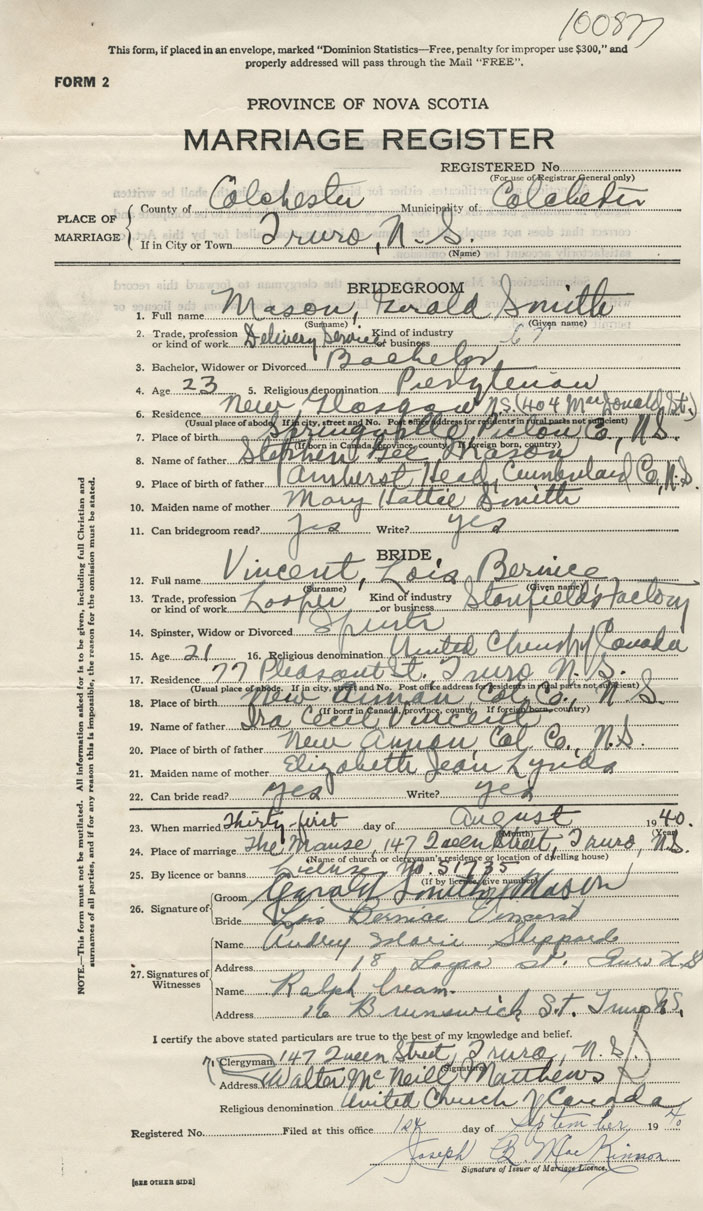 10087
This form, if placed in an envelope, marked "Dominion Statistics—Free, penalty for improper use $300," and
properly addressed will pass through the Mail "FREE".
FORM 2
PROVINCE OF NOVA SCOTIA
MARRIAGE REGISTER
REGISTERED No.
(For use of Registrar General only)
PLACE OF MARRIAGE
County of Colchester Municipality of Colchester
If in City or Town Truro, N.S.
(Name)
BRIDEGROOM
1. Full name Mason, Gerald Smith
(Surname) (Given name)
2. Trade, profession or kind of work Delivery Service Kind of industry or business
3. Bachelor, Widower or Divorced Bachelor
4. Age 23 5. Religious denomination Presbyterian
6. Residence New Glasgow N.S. (404 MacDonald St.)
(Usual place of abode. If in city, street and No. Post office address for residents in rural parts not sufficient)
7. Place of birth Springville Pictou Co., N.S.
(If born in Canada, province, county. If foreign born, country)
8. Name of father Stephen Mason
9. Place of birth of father Amherst Head, Cumberland Co., N.S.
10. Maiden name of mother Mary Hattie Smith
11. Can bridegroom read? yes Write? yes
BRIDE
12. Full name Vincent, Lois Bernice
(Surname) (Given name)
13. Trade, profession or kind of work Looper Kind of industry or business Stanfield's Factory
14. Spinster, Widow or Divorced Spinster
15. Age 21 16. Religious denomination United Church of Canada
17. Residence 77 Pleasant St. Truro N.S.
(Usual place of abode. If in city, street and No. Post office address for residents in rural parts not sufficient)
18. Place of birth New Annan, Col. Co., N.S.
(If born in Canada, province, county. If foreign born, country)
19. Name of father Ira Cecil Vincent
20. Place of birth of father New Annan, Col Co., N.S.
21. Maiden name of mother Elizabeth Jean Lynds
22. Can bride read? yes Write? yes
23. When married Thirty-first day of August 1940.
(Month) (Year)
24. Place of marriage The Manse, 147 Queen Street, Truro, N.S.
(Name of church or clergyman's residence or location of dwelling house)
25. By licence or banns License No. 51735
(If by licence, give number)
26. Signature of
Groom Gerald Smith Mason
Bride Lois Bernice Vincent
27. Signatures of Witnesses
Name Audrey Marie Sheppard
Address 18 Logan St. Truro N.S
Name Ralph Cream.
Address 16 Brunswick St. Truro N.S.
I certify the above stated particulars are true to the best of my knowledge and belief.
Clergyman 147 Queen Street, Truro, N.S.
(Signature)
Address Walter McNeill Matthews
Religious denomination United Church of Canada
Registered No. Filed at this office 1st day of September 1940
Joseph B. MacKinnon
Signature of Issuer of Marriage Licence.
[SEE OTHER SIDE]
NOTE.—This form must not be mutilated. All information asked for is to be given, including full Christian and
surnames of all parties, and if for any reason this is impossible, the reason for the omission must be stated.